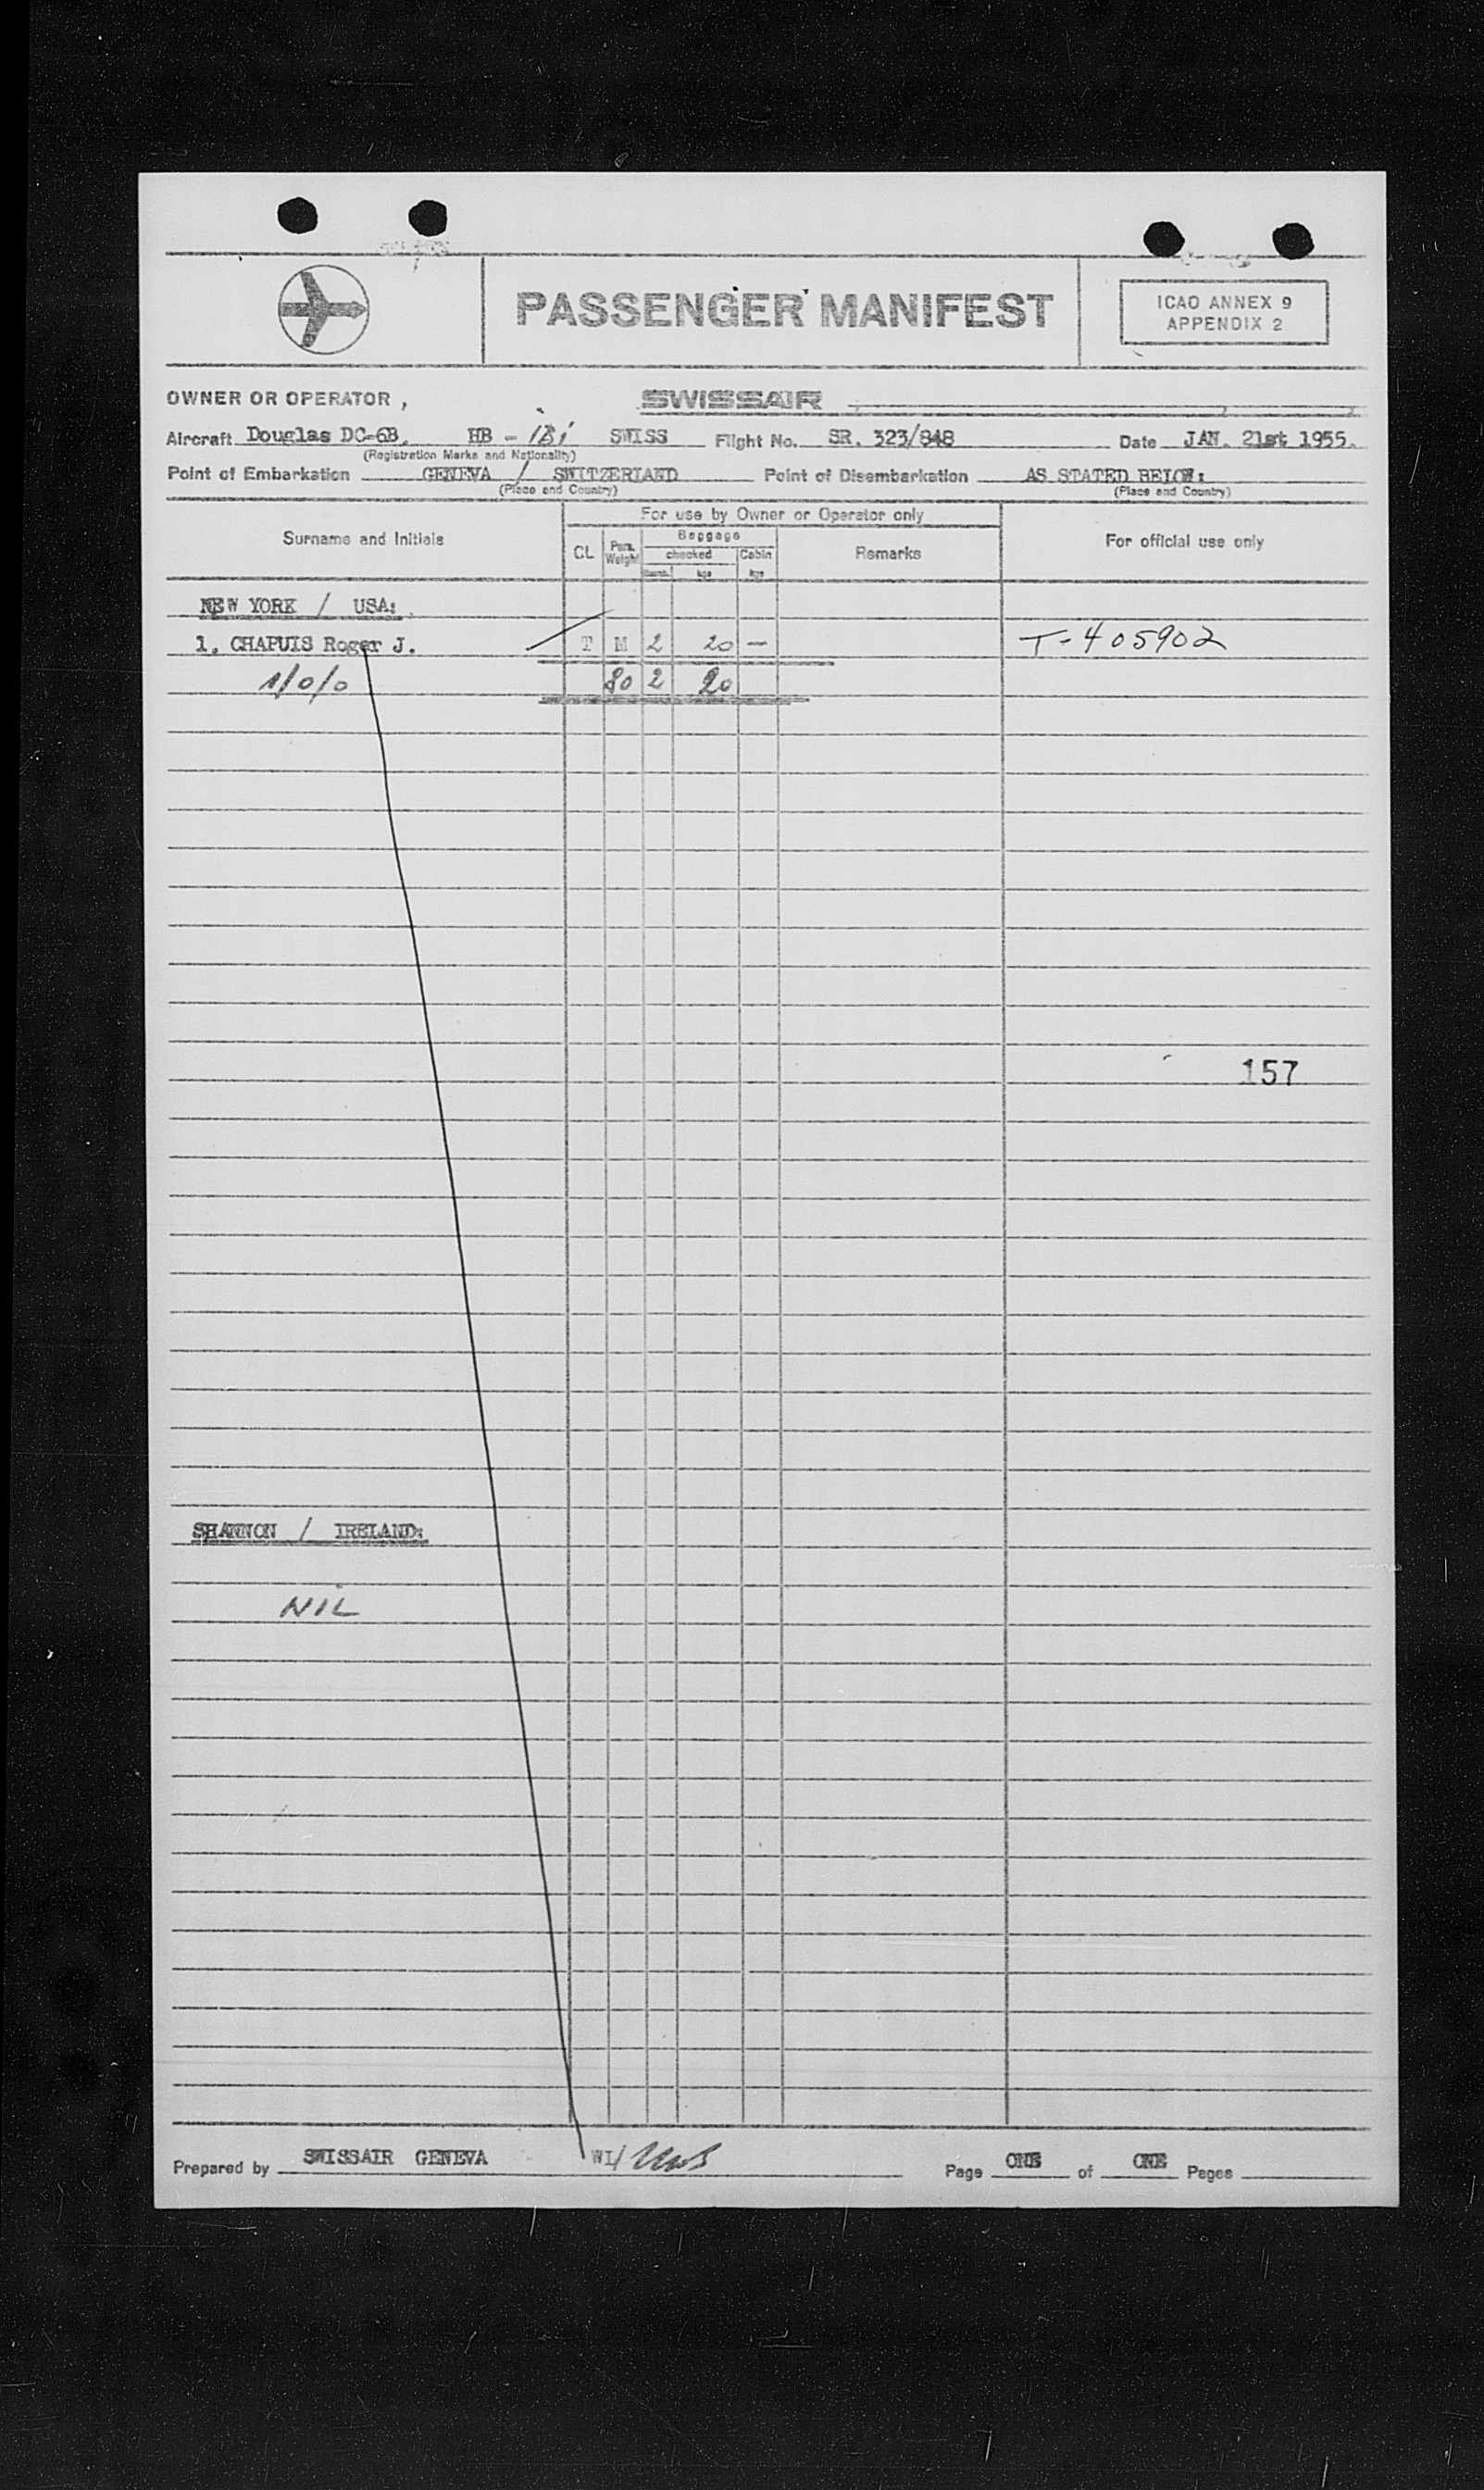 PASSENGER MANIFEST
ICAO ANNEX 9
APPENDIX 2
OWNER OR OPERATOR, SWISSAIR
Aircraft Douglas DC-6B. HB - iBi SWISS Flight No. SR. 323/848 Date JAN. 21st 1955.
(Registration Marks and Nationality)
Point of Embarkation GENEVA / SWITZERLAND Point of Disembarkation AS STATED BELOW:
(Place and Country) (Place and Country)
For use by Owner or Operator only
Surname and Initials CL Pers. Weight Baggage Remarks For official use only
checked Cabin
kgs kgs
NEW YORK / USA:
1. CHAPUIS Roger J. T M 2 20 — T-405902
1/0/0 80 2 20
157
SHANNON / IRELAND:
NIL
Prepared by SWISSAIR GENEVA WI/ Page ONE of ONE Pages